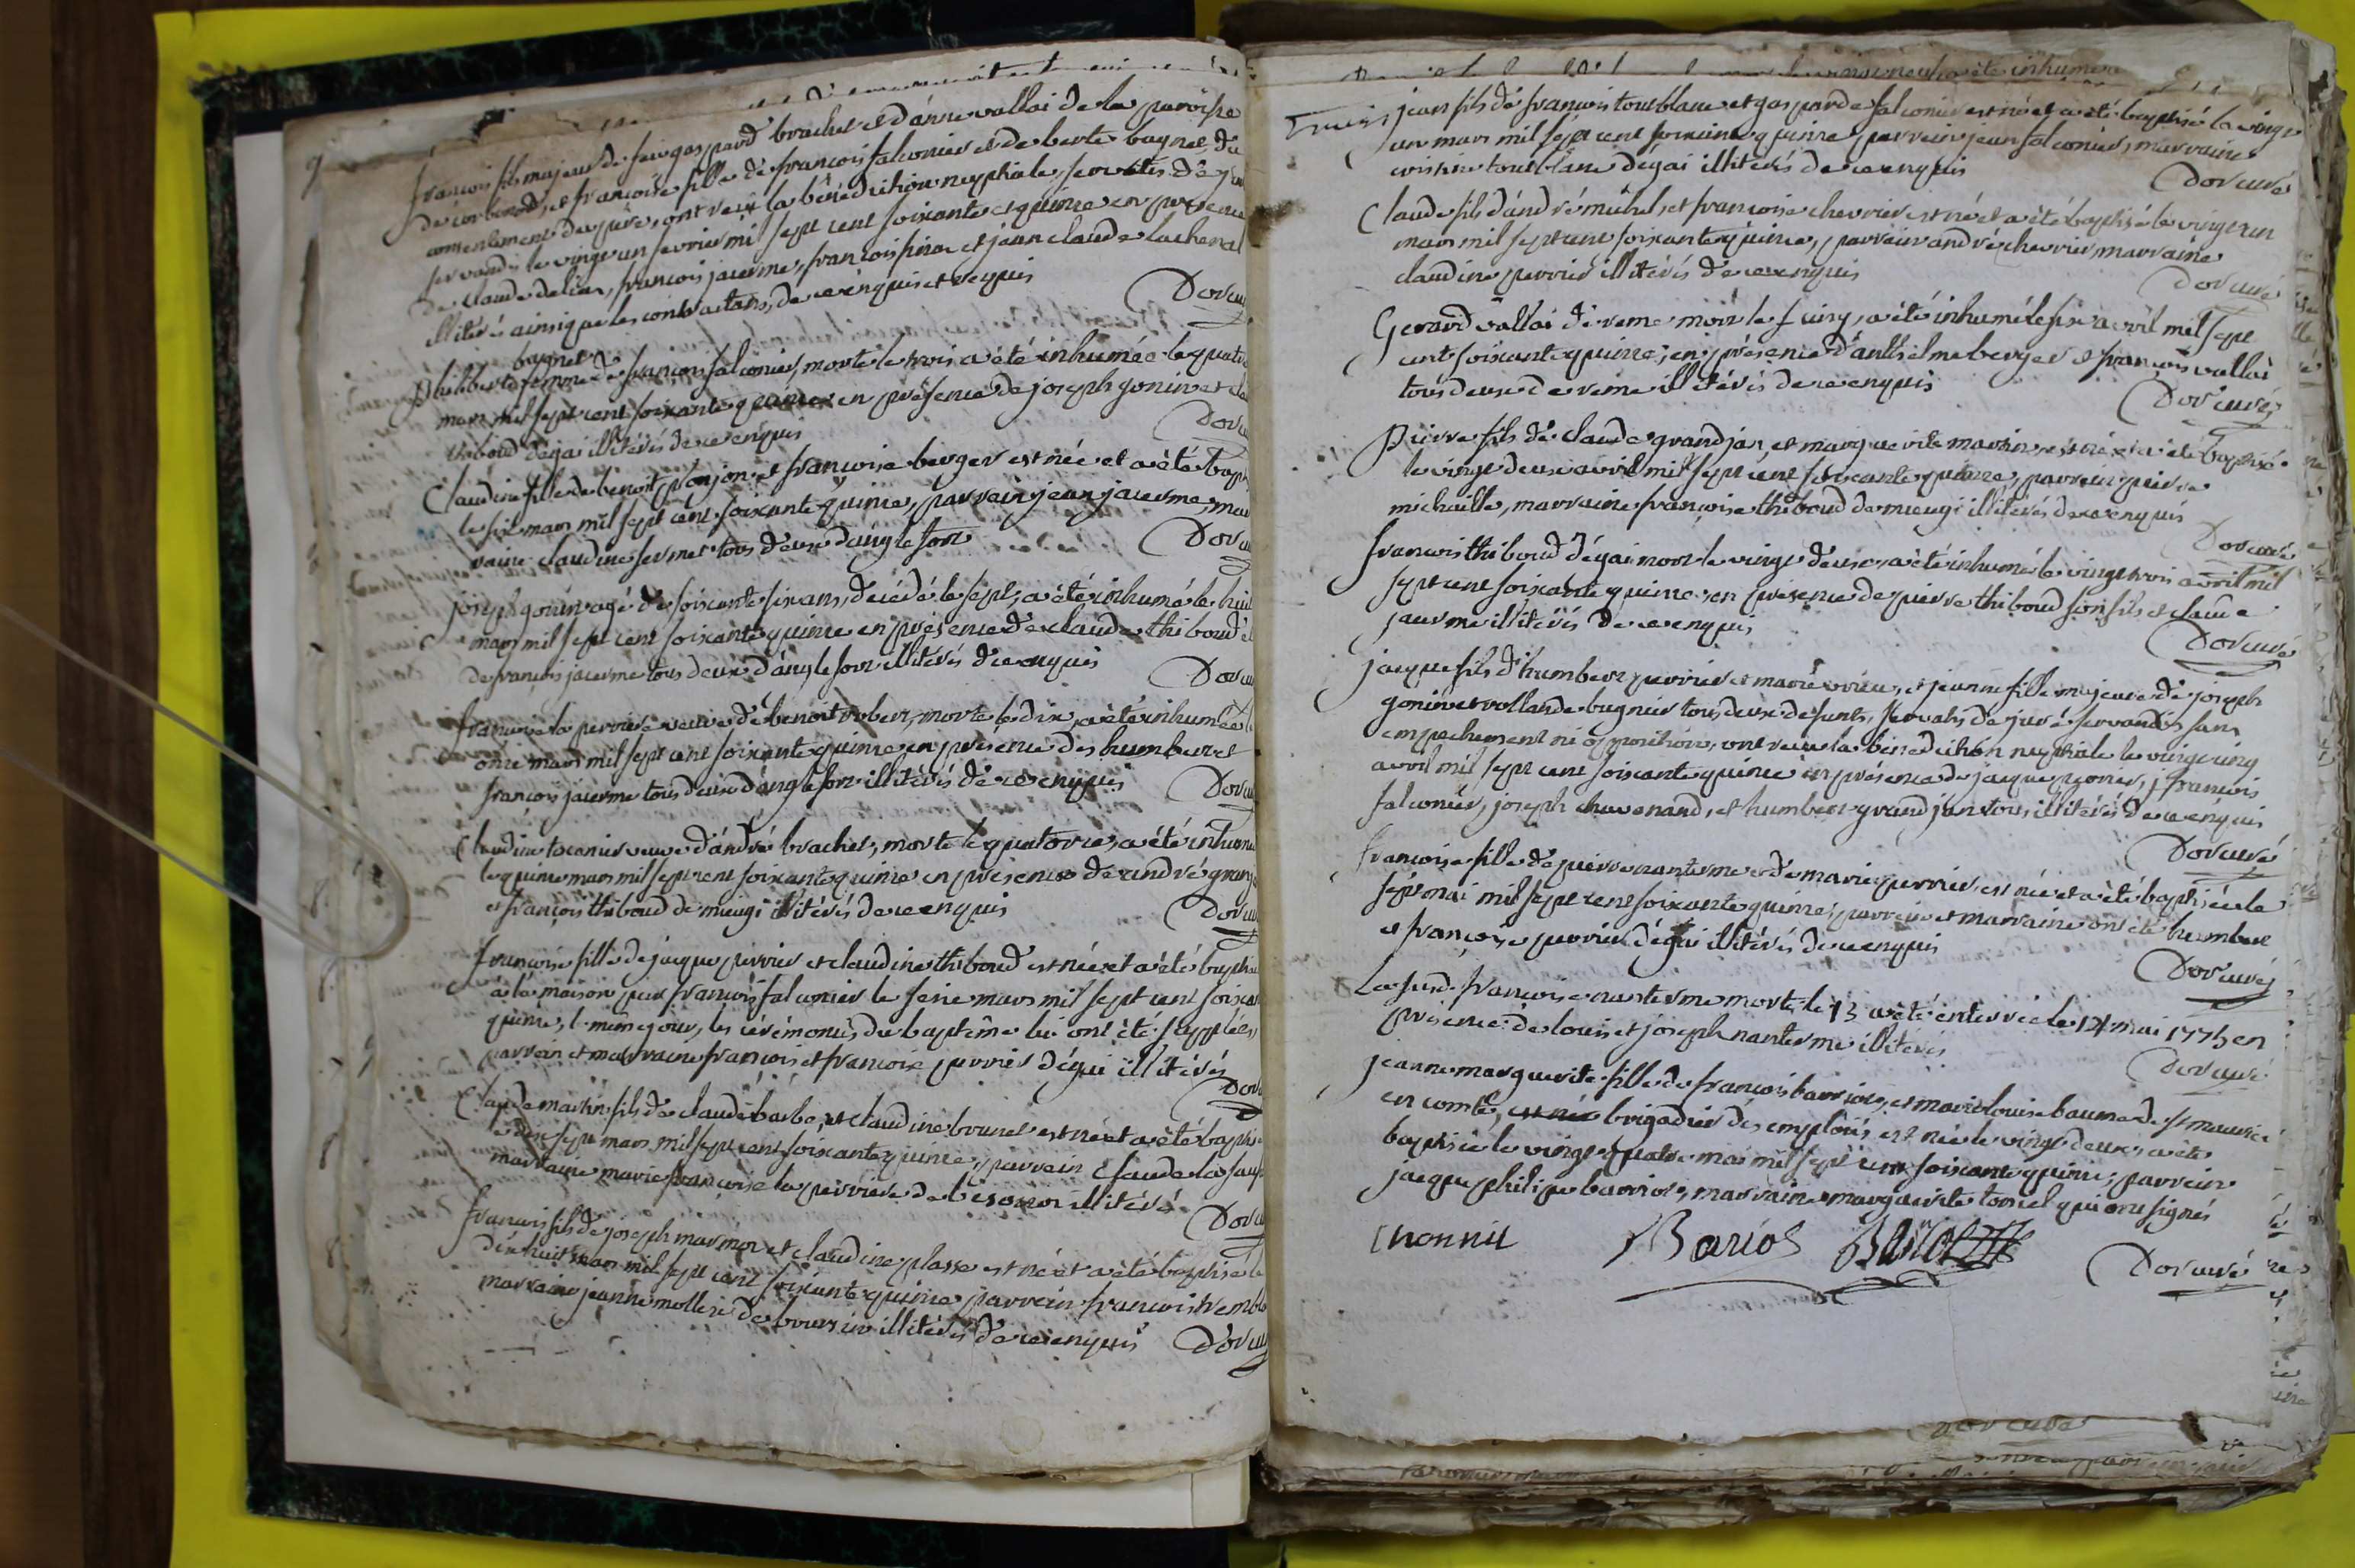 françois fils majeur de feu gaspard brachet et d'anne vallai de la paroisse
de corbonod, et françoise fille de françois falconier et de berte bagnet du
consentement du père, ont reçu la bénédiction nuptiale, servatis de jure
servandis le vingt un fevrier mil sept cent soixante et quinze en présence
de claude delian, françois jacerme, françois pinoc et jean claude lachenal
illitéré ainsi que les contractans, de ce enquis et requis
Dor cu
bagnet
philiberte femme de françois falconier, morte le trois a été inhumée le quatre
mars mil sept cent soixante quinze en présence de joseph gonin et cla
thiboud dégai illitérés de ce enquis
Dor cu
Claudine fille de benoit ponjon et françoise berger est née et a été bapt
le six mars mil sept cent soixante quinze, parrain jean jacerme, mar
raine claudine fermet tous deux d'anglefort
Dor cu
joseph gonin agé de soixante six ans, décédé le sept, a été inhumé le huit
mars mil sept cent soixante quinze en présence de claude thiboud et
de françois jacerme tous deux d'anglefort illitérés de ce enquis
Dor cu
françoise la perriere veuve de benoit robert, morte le dix a été inhumée le
onze mars mil sept cent soixante quinze en présence des humbert et
françois jacerme tous deux d'anglefort illitérés de ce enquis
Dor cu
Claudine taconier veuve d'andré brachet, morte le quatorze, a été inhumé
le quinze mars mil sept cent soixante quinze en présence de andré
et françois thiboud de mieugi illitérés de ce enquis
Dor cu
françoise fille de jacque perrier et claudine thiboud est née et a été baptis
à la maison par françois falconier le seize mars mil sept cent soixan
quinze, l même jour, les cérémonies du baptême lui ont été supplées,
parrain et marraine françois et françoise perrier dégai illitérés
Dor
Claude martin fils de claude barbe, et claudine brunet est né et a été baptis
le dix sept mars mil sept cent soixante quinze, parrain Claude la
marraine marie françoise la perriere de illitéré
Dor cu
françois fils de joseph marmor et claudine plasse est né et a été baptisé le
dix huit mars mil sept cent soixante quinze parrain françois trembl
marraine jeanne de illitérés de ce enquis
Dor cu
a été inhumé
jean fils de françois toutblanc et gasparde falconier est né et a été baptisé le vingt
un mars mil sept cent soixante quinze parrain jean falconier, marraine
toutblanc dégai illitérés de ce enquis
Dor curé
Claude fils d'andré michel, et françoise chevrier est né et a été baptisé le vingt un
mars mil sept cent soixante quinze, parrain andré chevrier, marraine
claudine perrier illitérés de ce enquis
Dor curé
Gerard vallai de reme mort le cinq, a été inhumé le six avril mil sept
cent soixante quinze, en présence d'anthelme berger et françois vallai
tous deux de reme illitérés de ce enquis
Dor curé
pierre fils de claude grandjan, et marguerite martin est né et a été baptisé
le vingt deux avril mil sept cent soixante quinze, parrain pierre
michaille, marraine françoise thiboud de mieugi illitérés de ce enquis
Dor curé
francois thiboud dégai mort le vingt deux, a été inhumé le vingt trois avril mil
sept cent soixante quinze en présence de pierre thiboud son fils et claude
jacerme illitérés de ce enquis
Dor curé
jacque fils d'humbert perrier et marie, et jeanne fille majeure de joseph
gonin et rollande bugnier tous deux defunts, servatis de jure servandis sans
empechement ni opposition, ont reçu la bénédiction nuptiale le vingt cinq
avril mil sept cent soixante quinze en présence de jacque, françois
falconier, joseph chavenand, et humbert grandjan tous illitérés de ce enquis
Dor curé
françoise fille de pierre nanterme et de marie perrier est née et a été baptisée le
sept mai mil sept cent soixante quinze, parrain et marraine ont été humbert
et françoise perrier dégai illitérés de ce enquis
Dor curé
La susd. françoise nanterme morte le 13 a été enterrée le 14 mai 1775 en
présence de louis et joseph nanterme illiterés
Dor curé
jeanne marguerite fille de francois barriot, et marie louise baume de st maurice
en comté, est née brigadier des emploiés est née le vingt deux, a été
baptisée le vingt quatre mai mil sept cent soixante quinze, parrain
jacque philipe barriot, marraine marguerite toniel qui ont signés
thonniil Bariot Bariot
Dor curé
Dor curé